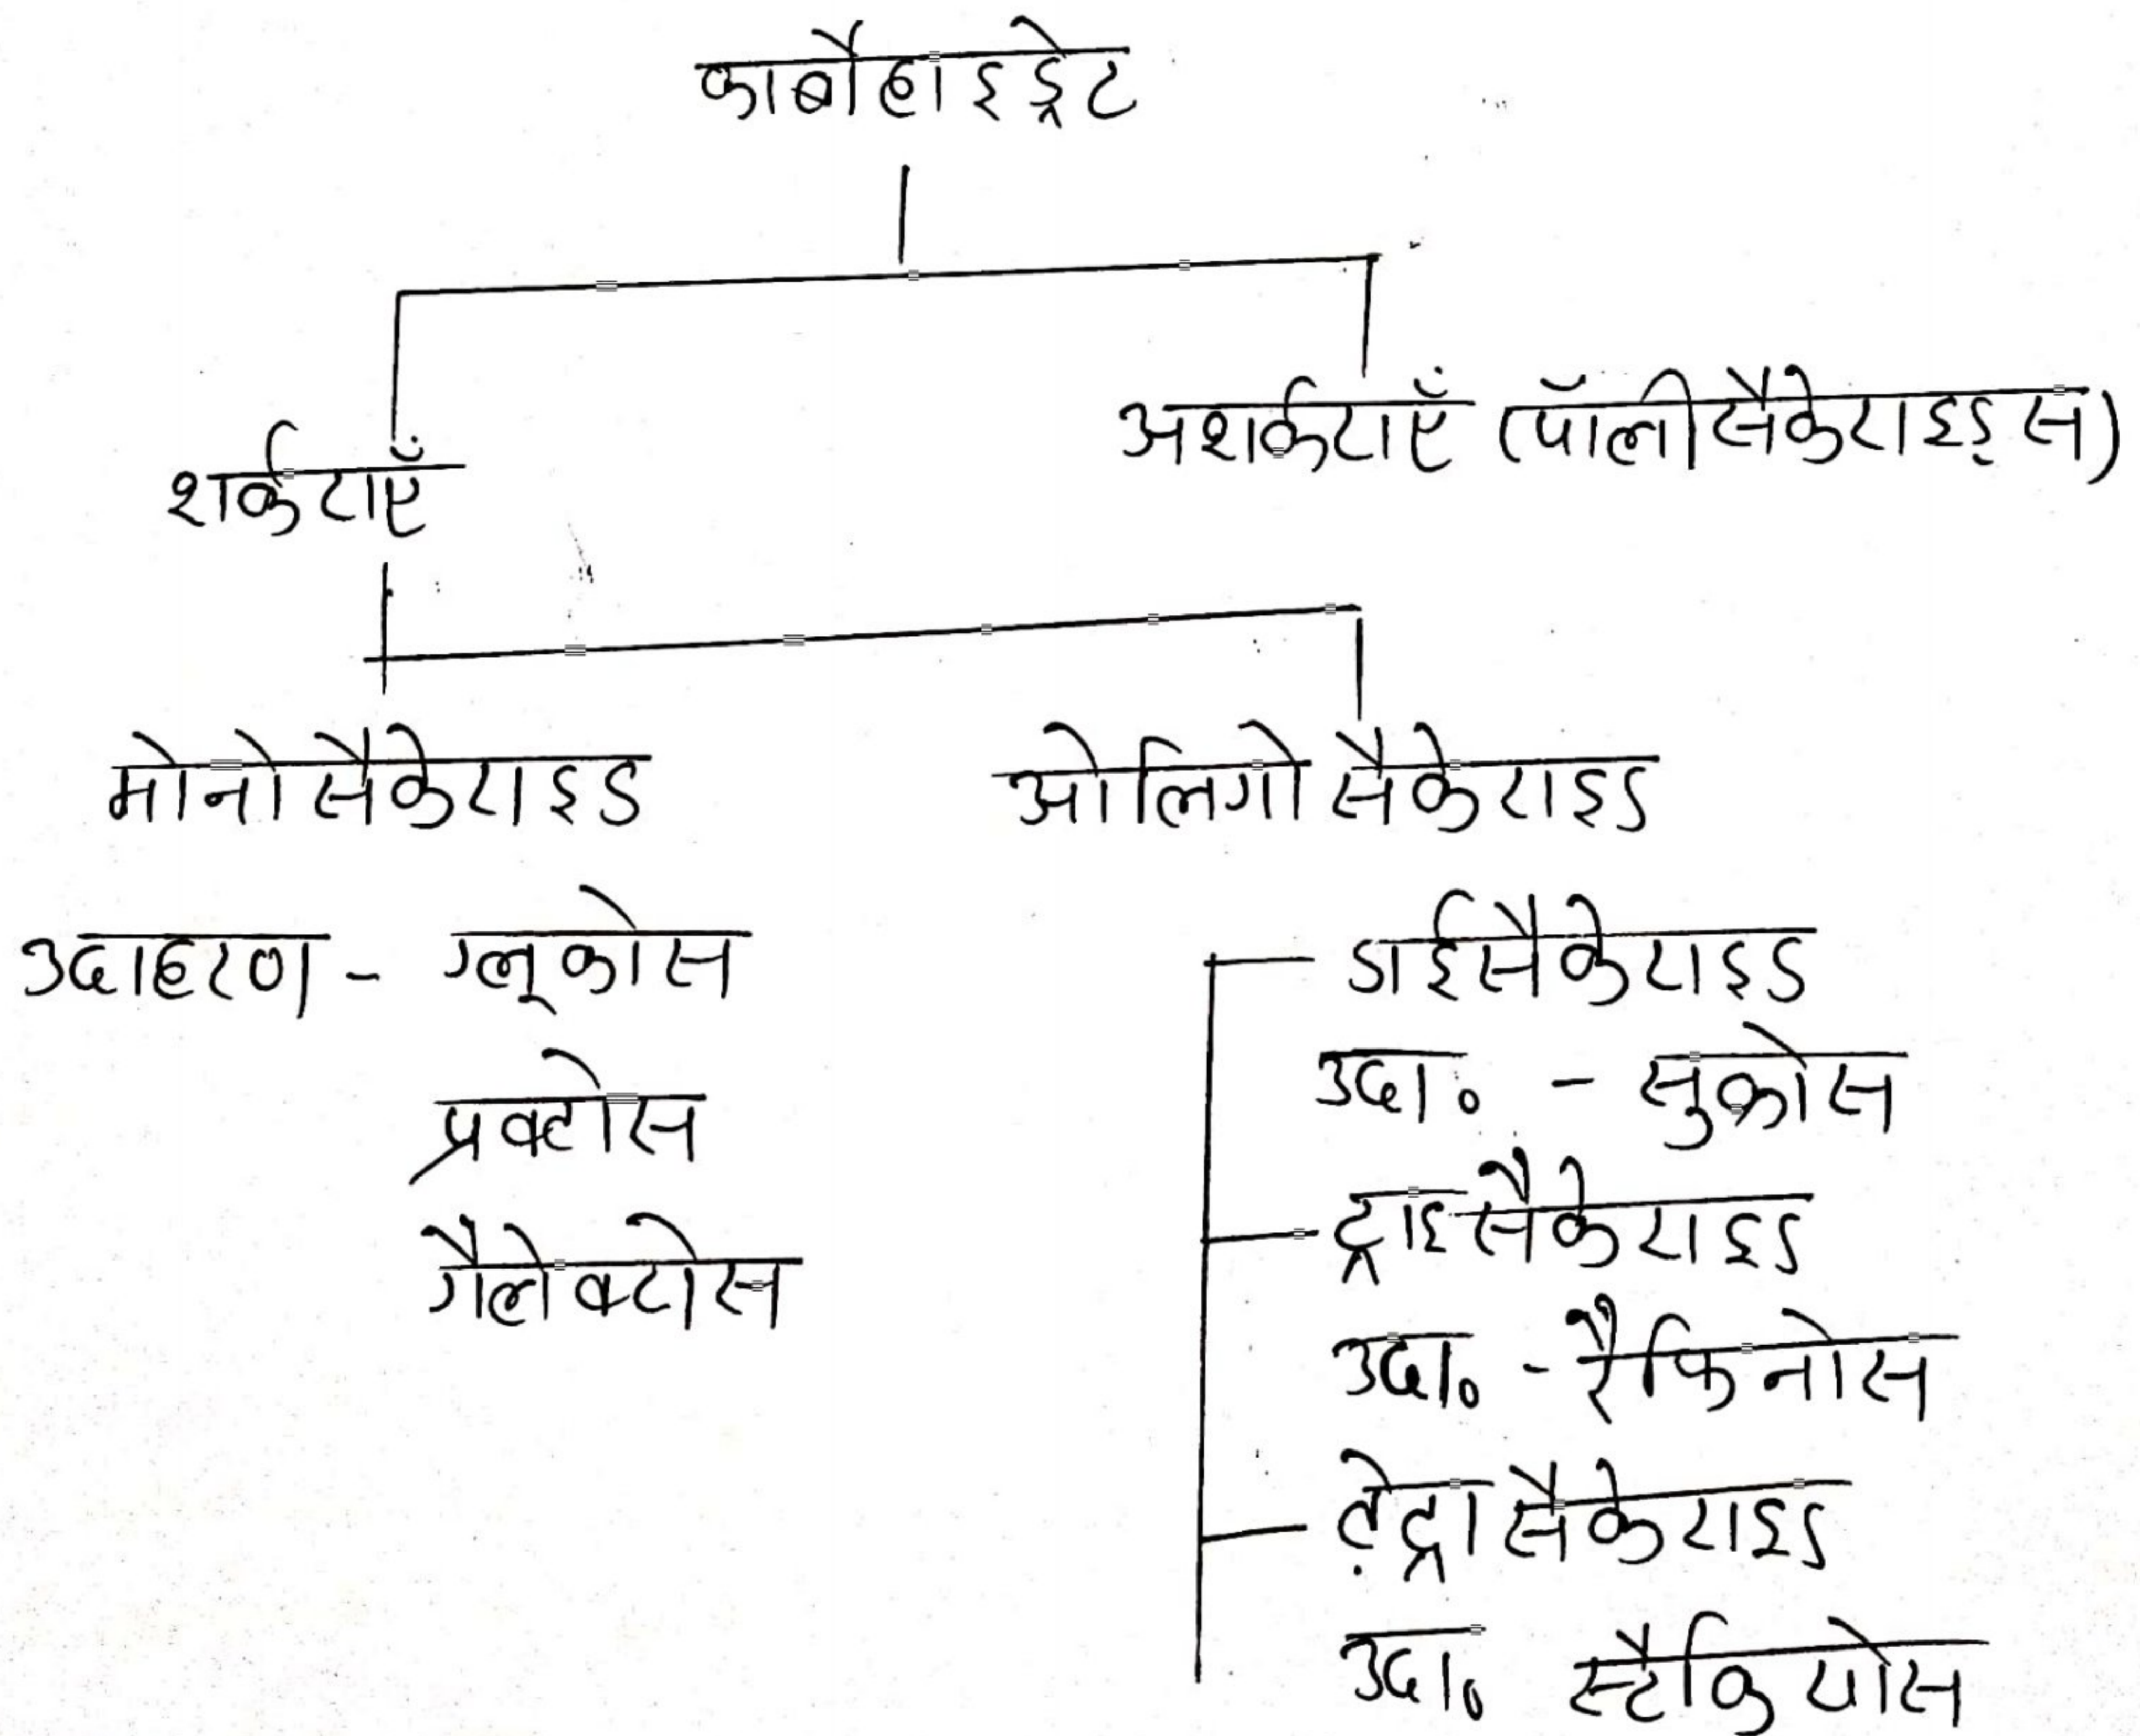 कार्बोहाइड्रेट
शर्कराएँ
अशर्कराएँ (पॉलीसैकेराइड्स)
मोनोसैकेराइड
ओलिगोसैकेराइड
उदाहरण - ग्लूकोस
प्रक्टोस
गैलेक्टोस
डाईसैकेराइड
उदा० - सुक्रोस
ट्राइसैकेराइड
उदा० - रैफिनोस
टेट्रासैकेराइड
उदा० स्टैकियोस